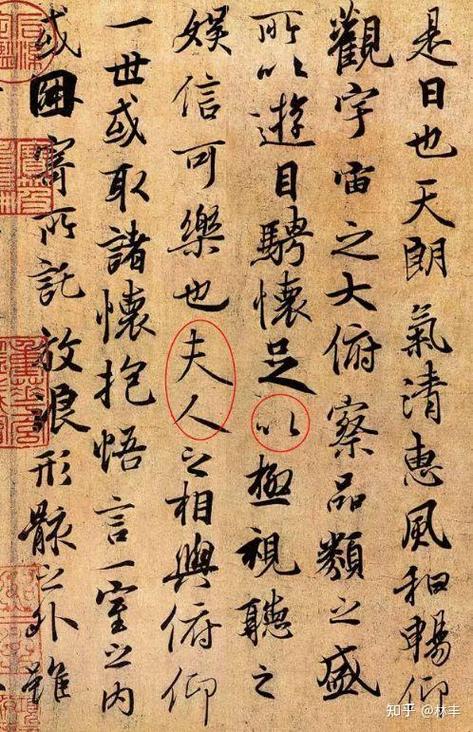 是日也天朗氣清惠風和暢仰
觀宇宙之大俯察品類之盛
所以遊目騁懷足以極視聽之
娛信可樂也夫人之相與俯仰
一世或取諸懷抱悟言一室之內
或因寄所託放浪形骸之外雖
知乎 @林丰